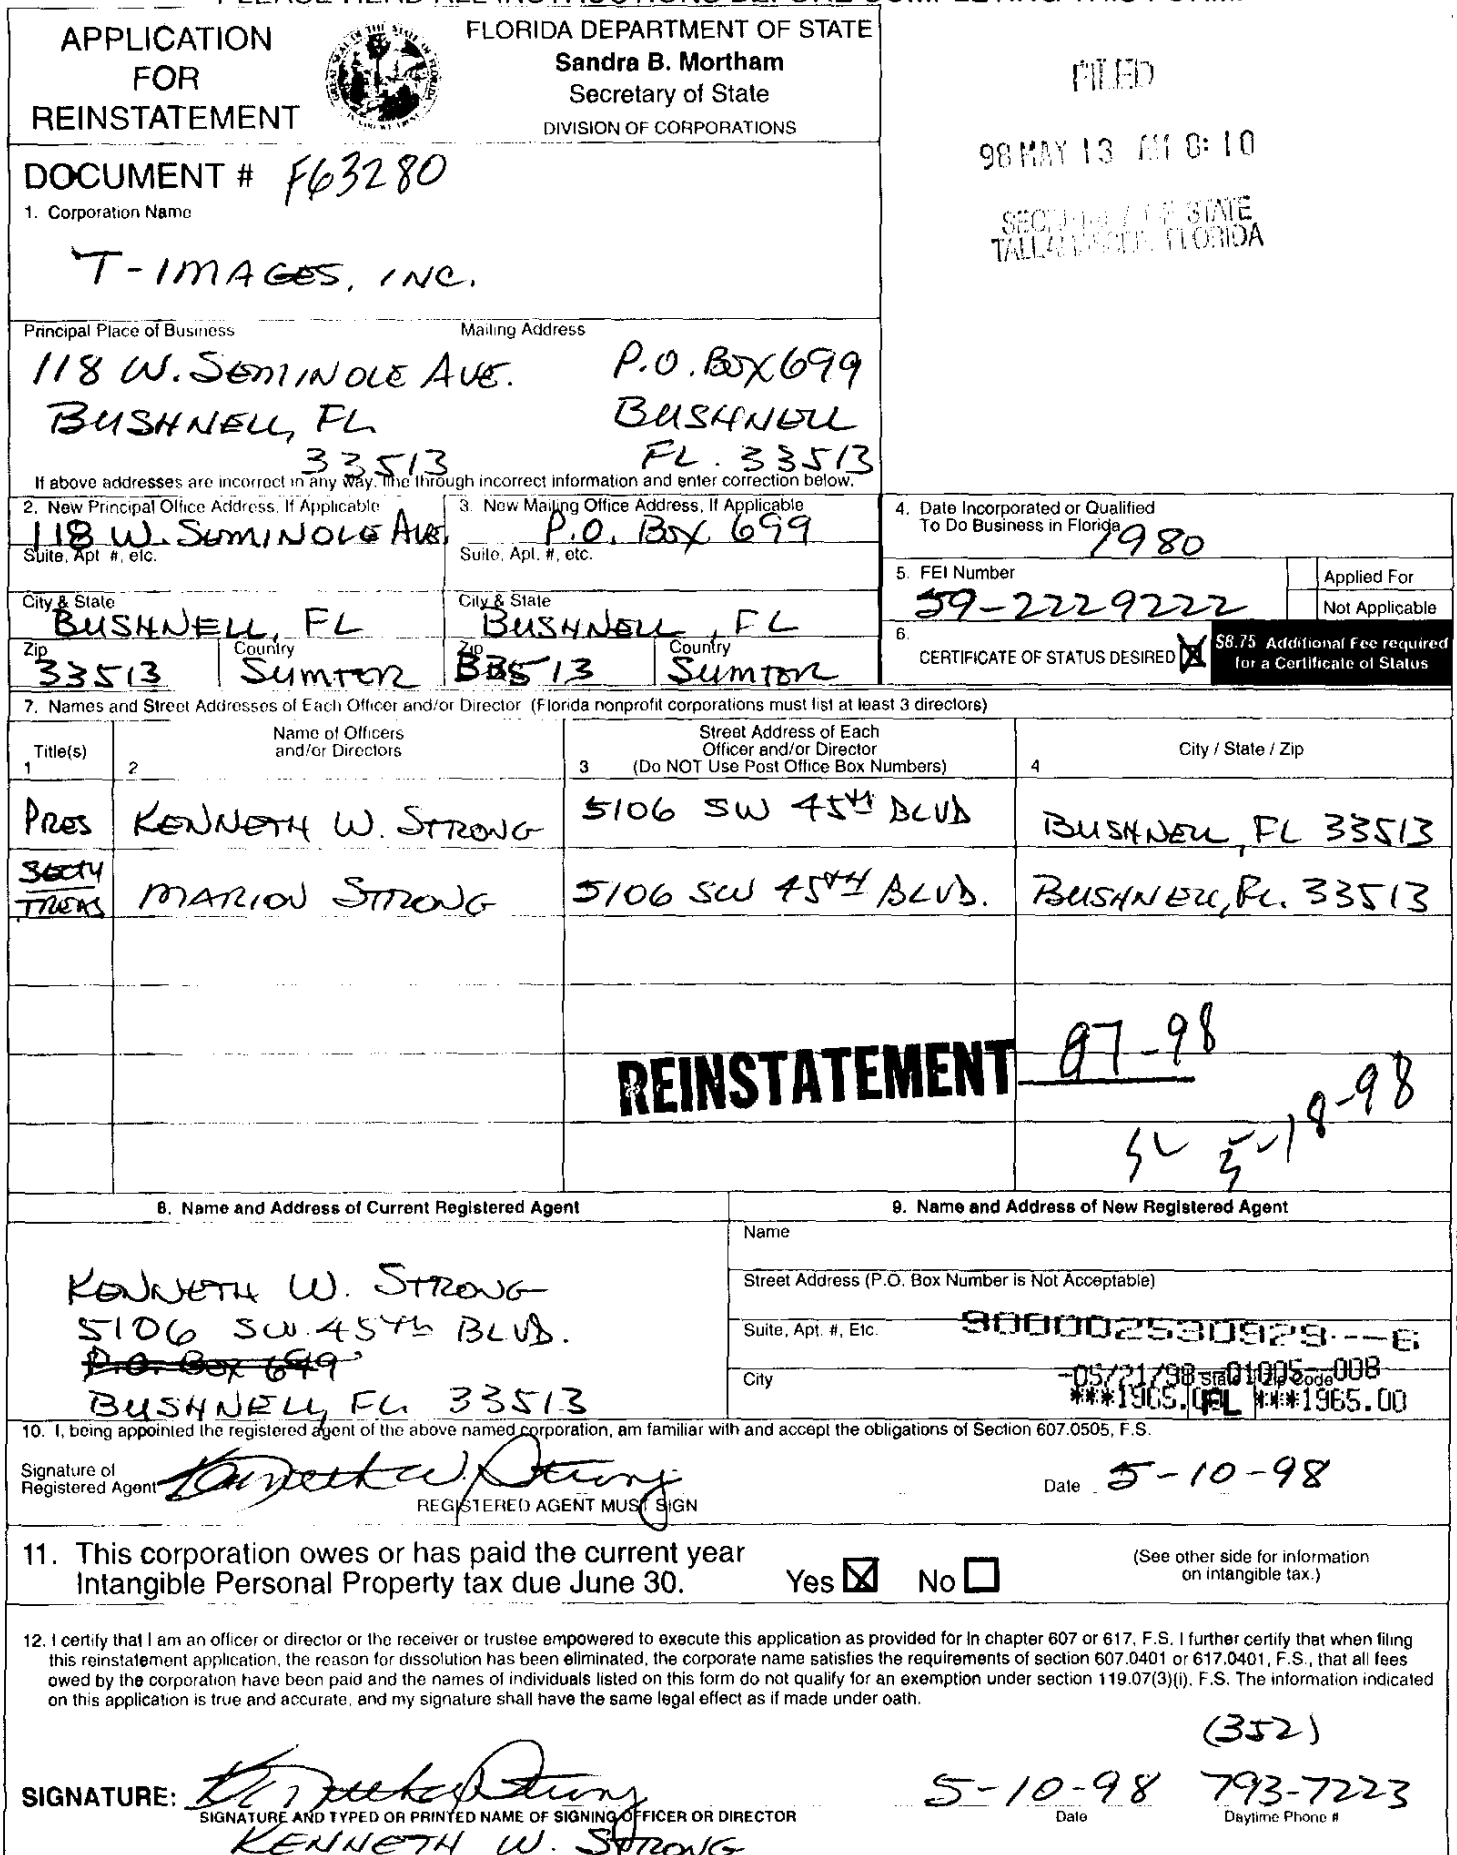 PLEASE READ ALL INSTRUCTIONS BEFORE COMPLETING THIS FORM
APPLICATION
FOR
REINSTATEMENT
FLORIDA DEPARTMENT OF STATE
Sandra B. Mortham
Secretary of State
DIVISION OF CORPORATIONS
FILED
98 MAY 13 AM 8:10
STATE
FLORIDA
DOCUMENT # F63280
1. Corporation Name
T-IMAGES, INC.
Principal Place of Business Mailing Address
118 W. SEMINOLE AVE. P.O. BOX 699
BUSHNELL, FL BUSHNELL
33513 FL. 33513
If above addresses are incorrect in any way, line through incorrect information and enter correction below.
2. New Principal Office Address, If Applicable 3. New Mailing Office Address, If Applicable
118 W. SEMINOLE AVE. P.O. BOX 699
Suite, Apt #, etc. Suite, Apt. #, etc.
City & State City & State
BUSHNELL, FL BUSHNELL, FL
Zip Country Zip Country
33513 SUMTER 33513 SUMTER
4. Date Incorporated or Qualified
To Do Business in Florida 1980
5. FEI Number
59-2229222
Applied For
Not Applicable
6.
CERTIFICATE OF STATUS DESIRED X
$8.75 Additional Fee required
for a Certificate of Status
7. Names and Street Addresses of Each Officer and/or Director (Florida nonprofit corporations must list at least 3 directors)
Title(s) 1
Name of Officers and/or Directors 2
Street Address of Each
Officer and/or Director
3 (Do NOT Use Post Office Box Numbers)
City / State / Zip 4
PRES KENNETH W. STRONG 5106 SW 45th BLVD BUSHNELL, FL 33513
SECTY
TREAS MARION STRONG 5106 SW 45TH BLVD. BUSHNELL, FL. 33513
REINSTATEMENT 97-98
5-18-98
8. Name and Address of Current Registered Agent
KENNETH W. STRONG
5106 SW 45th BLVD.
P.O. Box 699
BUSHNELL, FL. 33513
9. Name and Address of New Registered Agent
Name
Street Address (P.O. Box Number is Not Acceptable)
Suite, Apt. #, Etc. 900002530929---6
City State Zip Code
-05/21/98--01005--008
***1965.00 FL ***1965.00
10. I, being appointed the registered agent of the above named corporation, am familiar with and accept the obligations of Section 607.0505, F.S.
Signature of
Registered Agent Kenneth W. Strong Date 5-10-98
REGISTERED AGENT MUST SIGN
11. This corporation owes or has paid the current year
Intangible Personal Property tax due June 30. Yes X No
(See other side for information
on intangible tax.)
12. I certify that I am an officer or director or the receiver or trustee empowered to execute this application as provided for in chapter 607 or 617, F.S. I further certify that when filing
this reinstatement application, the reason for dissolution has been eliminated, the corporate name satisfies the requirements of section 607.0401 or 617.0401, F.S., that all fees
owed by the corporation have been paid and the names of individuals listed on this form do not qualify for an exemption under section 119.07(3)(i), F.S. The information indicated
on this application is true and accurate, and my signature shall have the same legal effect as if made under oath.
(352)
SIGNATURE: Kenneth W Strong 5-10-98 793-7223
SIGNATURE AND TYPED OR PRINTED NAME OF SIGNING OFFICER OR DIRECTOR Date Daytime Phone #
KENNETH W. STRONG